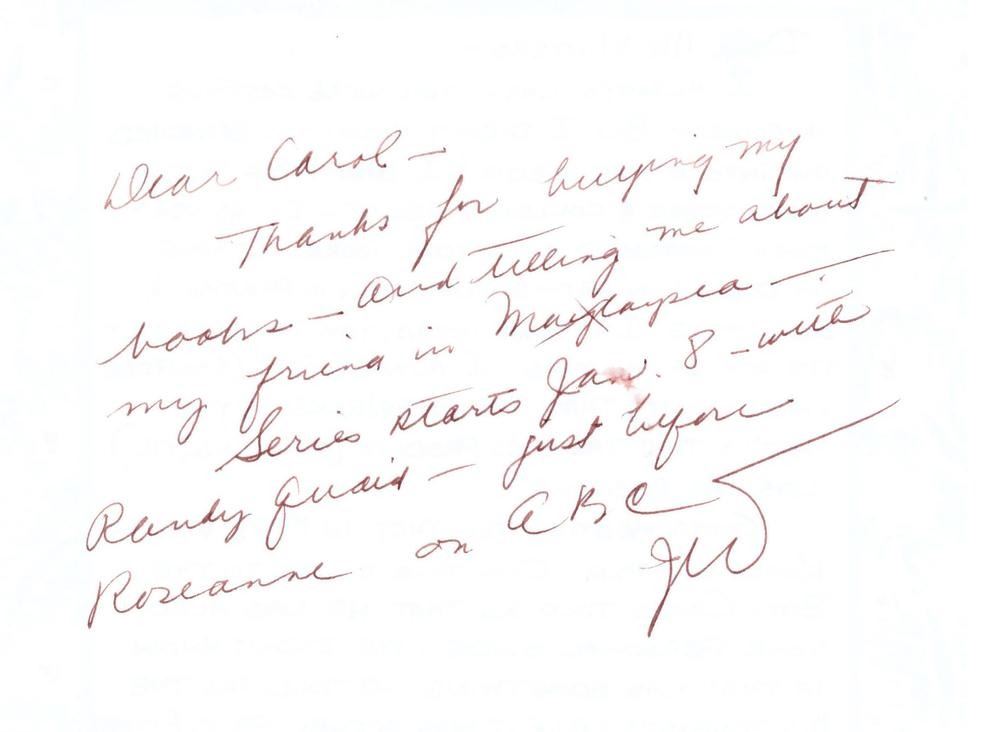 Dear Carol —
Thanks for buying my
books — and telling me about
my friend in Malaysia —
Series starts Jan. 8 — with
Randy Quaid — just before
Roseanne on ABC
JW